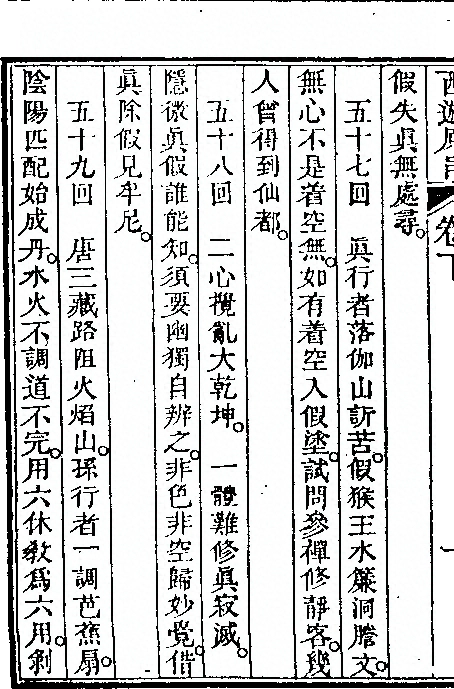 西遊原旨 卷下
假失眞無處尋。
五十七回 眞行者落伽山訴苦。假猴王水簾洞謄文。
無心不是着空無。如有着空入假塗。試問參禪修靜客。幾
人曾得到仙都。
五十八回 二心攪亂大乾坤。一體難修眞寂滅。
隱微眞假誰能知。須要幽獨自辨之。非色非空歸妙覺。借
眞除假見牟尼。
五十九回 唐三藏路阻火焰山。孫行者一調芭蕉扇。
陰陽匹配始成丹。水火不調道不完。用六休敎爲六用。剝